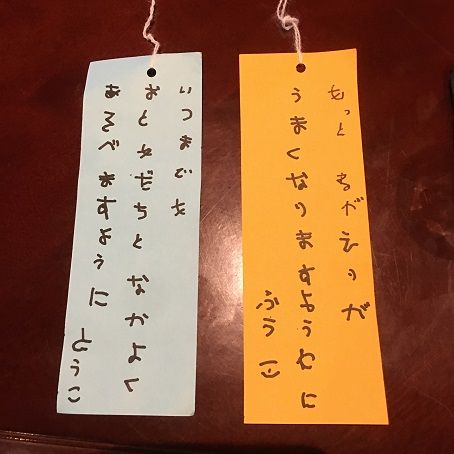 もっと まがえりが
うまくなりますように
ふうこ
いつまでも
おともだちとなかよく
あそべますように とうこ